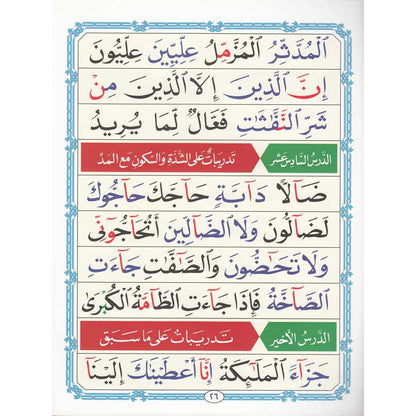 الْمُدَّثِّرُ الْمُزَّمِّلُ عِلِّيِّينَ عِلِّيُّونَ
إِنَّ الَّذِينَ إِلَّا الَّذِينَ مِنْ
شَرِّ النَّفّٰثٰتِ فَعَّالٌ لِّمَا يُرِيدُ
الدَّرْسُ السَّادِسُ عَشَرَ تَدْرِيبَاتٌ عَلَى الشَّدَّةِ وَالسُّكُونِ مَعَ الْمَدِّ
ضَآلًّا دَآبَّةٍ حَآجَّكَ حَآجُّوكَ
لَضَآلُّونَ وَلَا الضَّآلِّينَ أَتُحَآجُّوٓنِّى
وَلَا تَحٰٓضُّونَ وَالصّٰٓفّٰتِ جَآءَتِ
الصَّآخَّةُ فَإِذَا جَآءَتِ الطَّآمَّةُ الْكُبْرٰى
الدَّرْسُ الْأَخِيرُ تَدْرِيبَاتٌ عَلَى مَا سَبَقَ
جَزَآءً الْمَلٰٓئِكَةُ إِنَّآ أَعْطَيْنٰكَ إِلَيْنَآ
٢٦